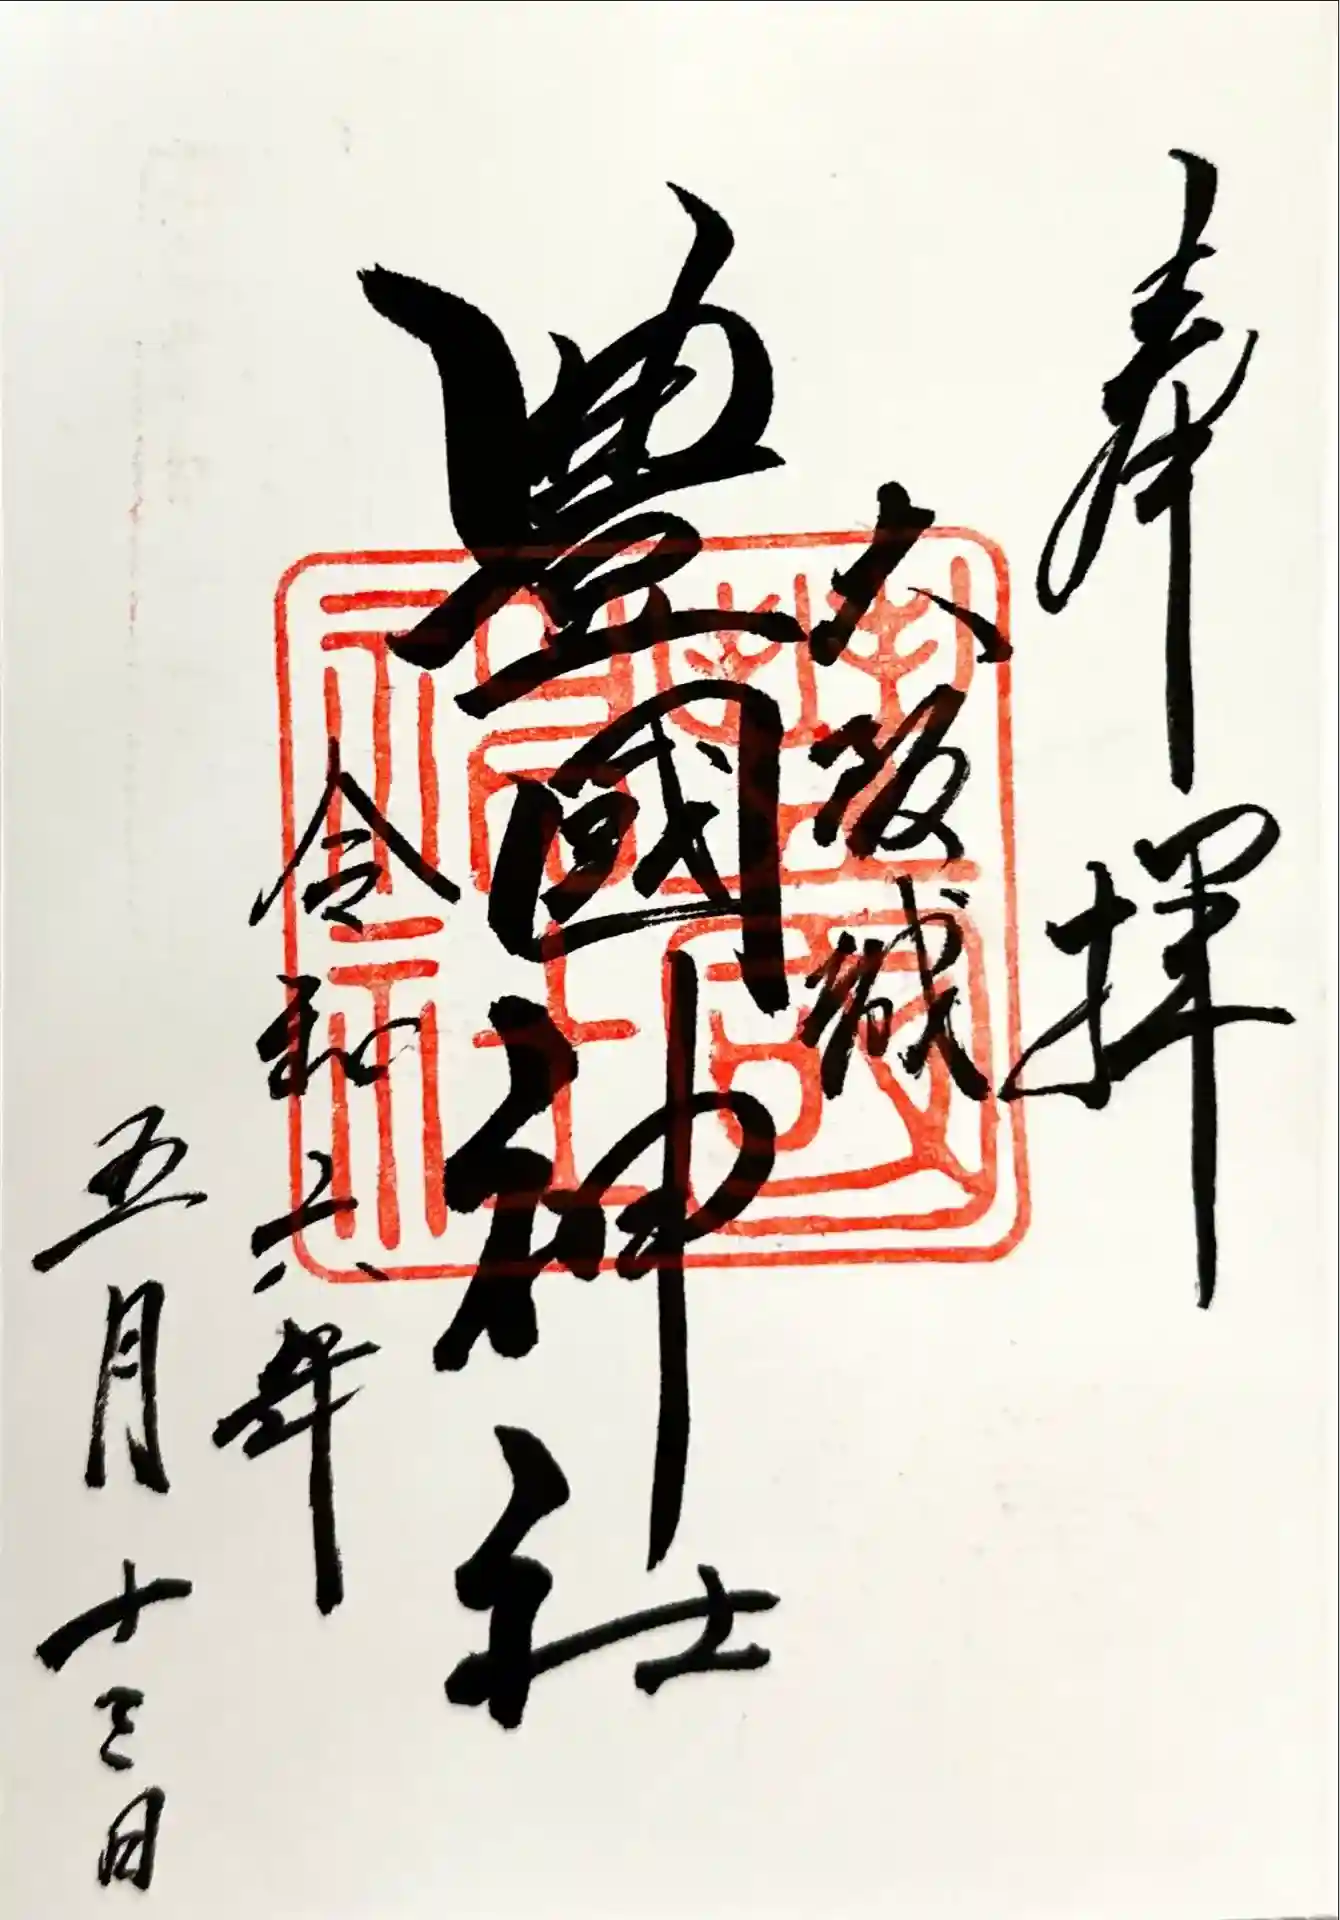 奉拝
大阪城
豊國神社
令和六年
五月十三日
豊國神社